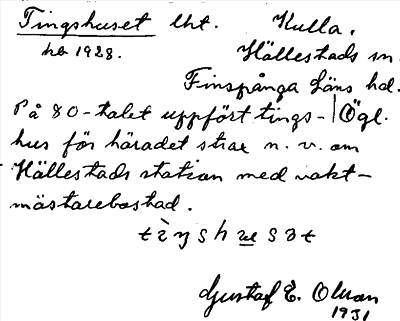 Tingshuset lht. Kulla,
hb 1928. Hällestads sn
Finspånga läns hd.
På 80-talet uppfört tings-| Ögl.
hus för häradet strax n. v. om
Hällestads station med vakt-
mästarebostad.
Gustaf E. Olson
1931